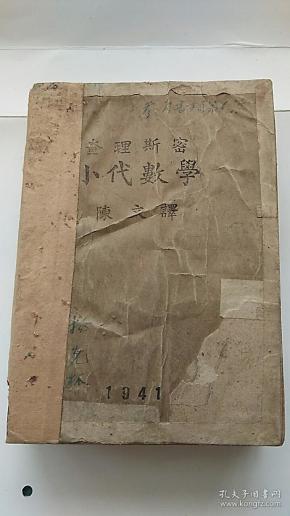 查理斯密
小代數學
陳文譯
1941
孔夫子旧书网
www.kongfz.com